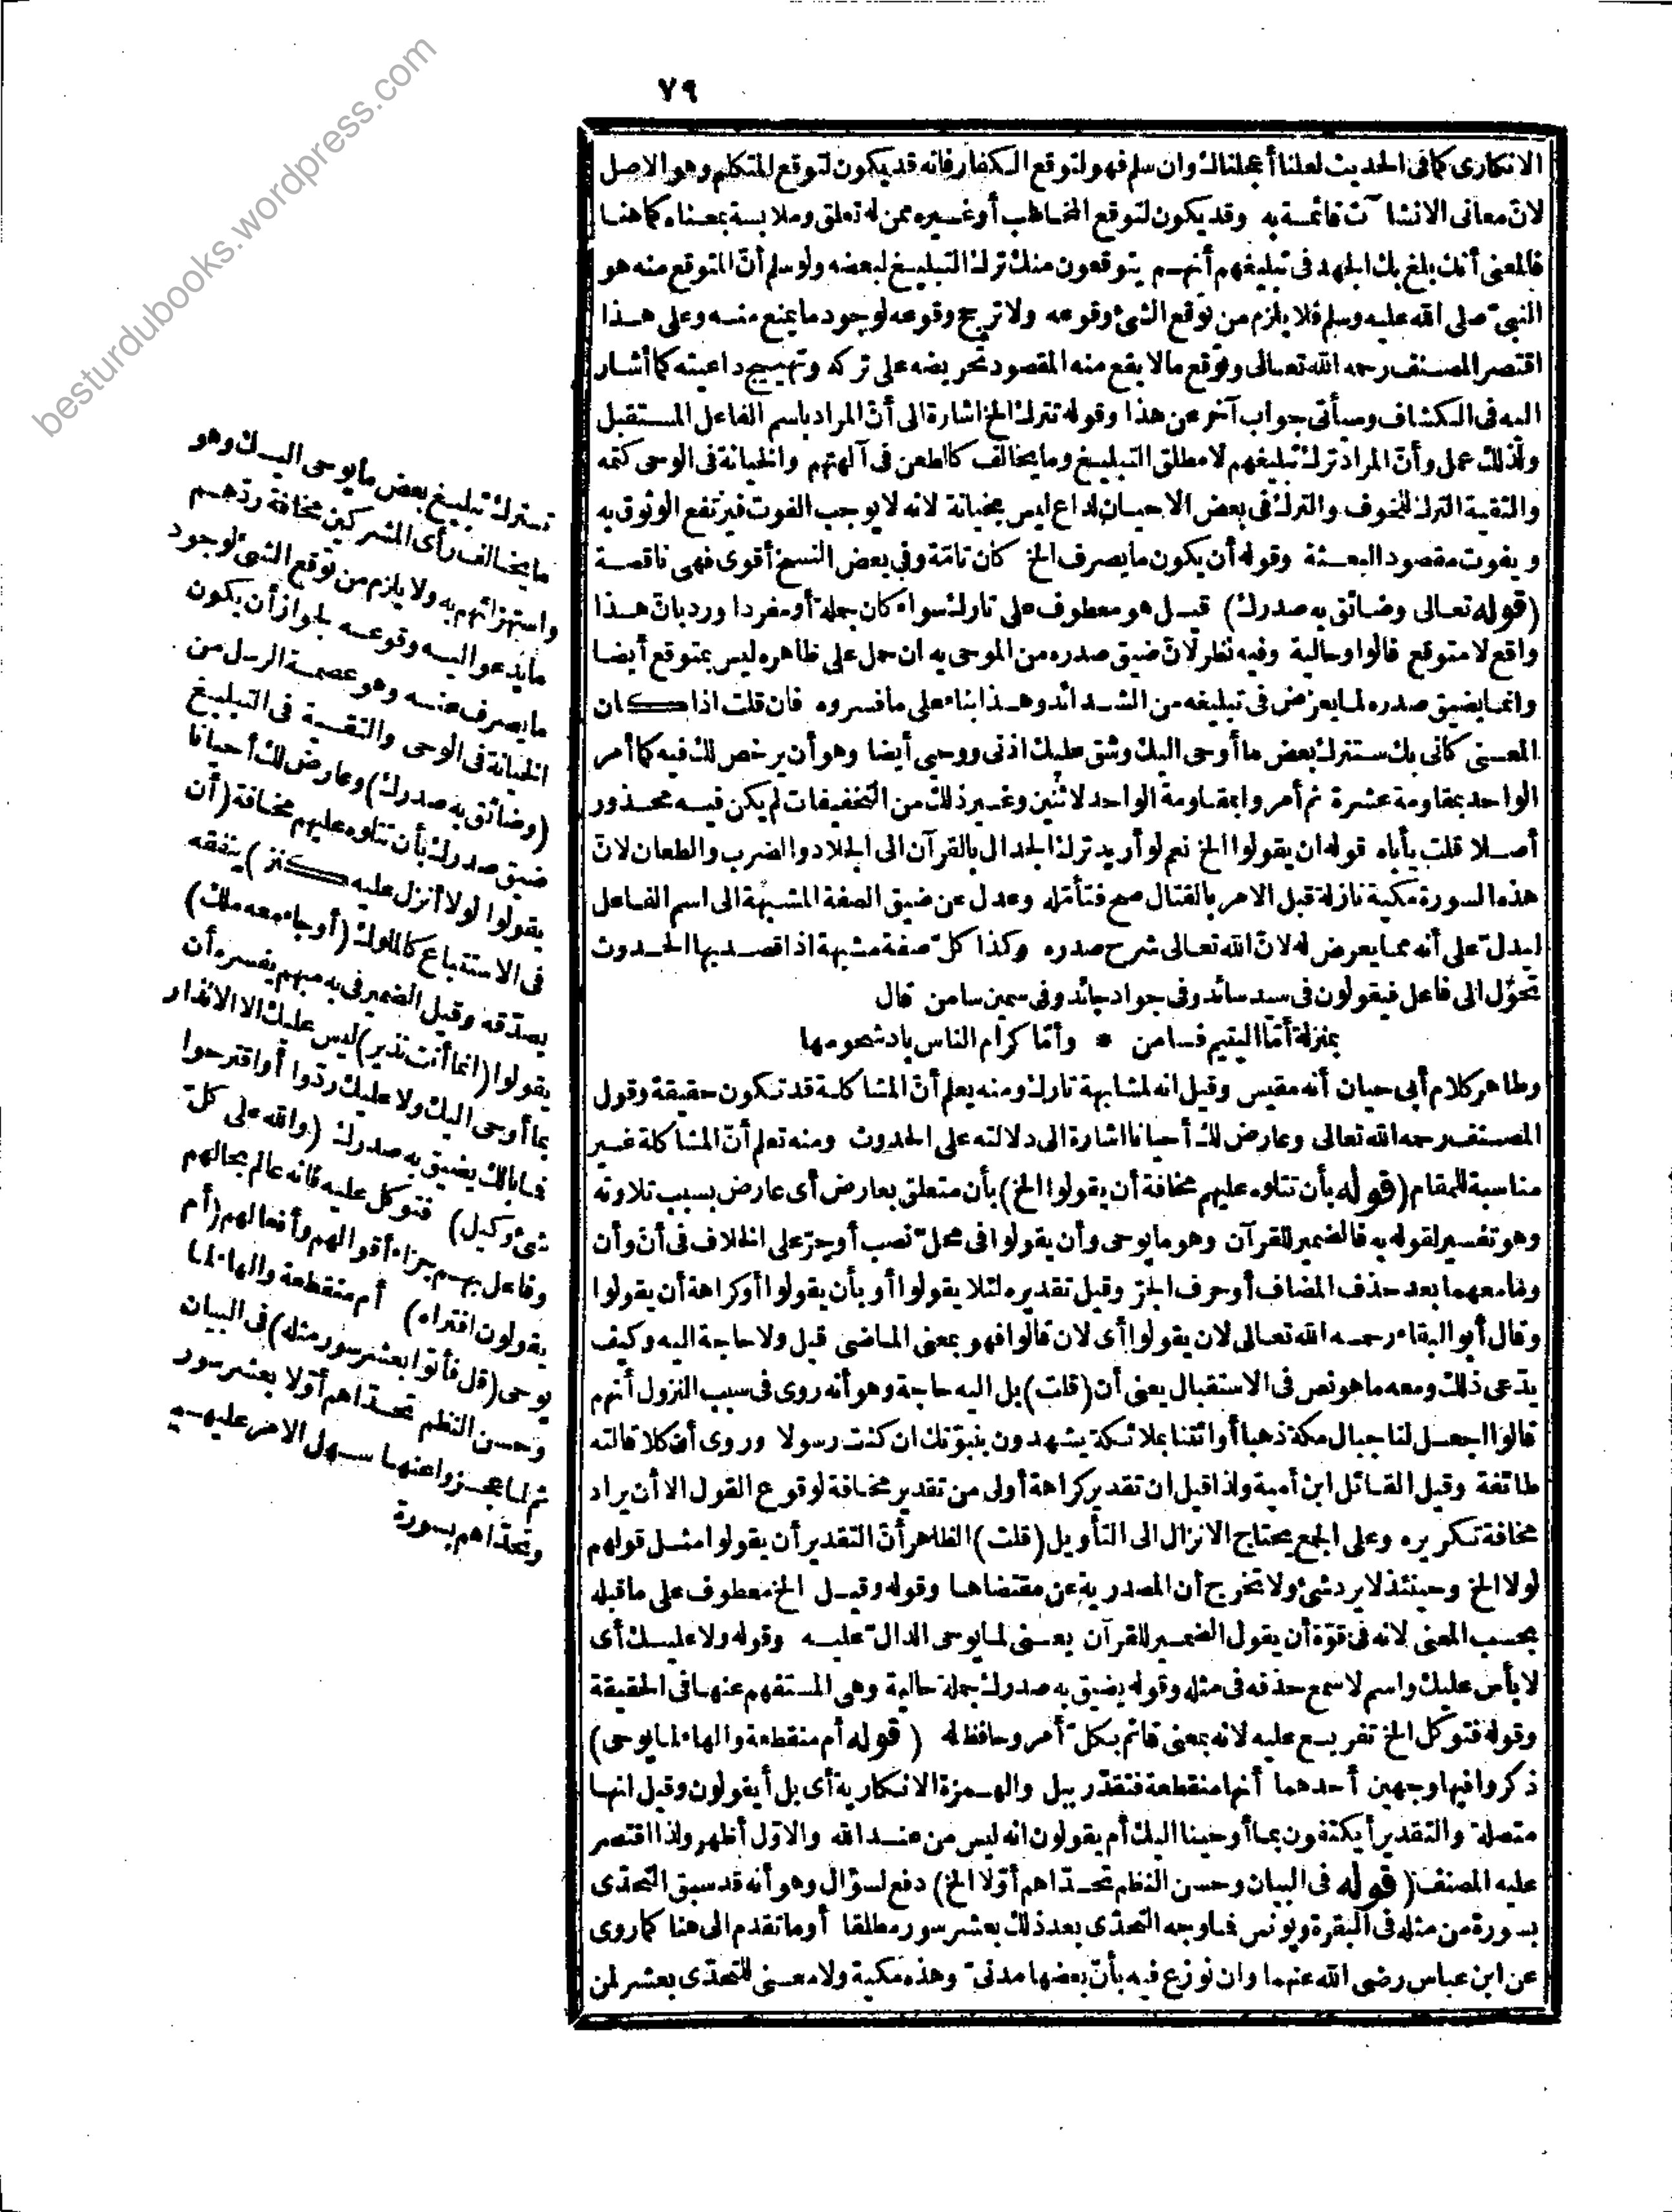 ٧٩
الانكارى كما فى الحديث لعلنا أعجلناك وان سلم فهو لتوقع الكفار فانه قد يكون لتوقع المتكلم وهو الاصل
لانّ معانى الانشا آت قائمة به وقد يكون لتوقع المخاطب أو غيره ممن له تعلق وملابسة بمعناه كما هنا
فالمعنى أنك بلغ بك الجهد فى تبليغهم أنهم يتوقعون منك ترك التبليغ لبعضه ولو سلم أنّ المتوقع منه هو
النبىّ صلى الله عليه وسلم فلا يلزم من توقع الشئ وقوعه ولا ترجح وقوعه لوجود ما يمنع منه وعلى هذا
اقتصر المصنف رحمه الله تعالى وتوقع ما لا يقع منه المقصود تحريضه على تركه وتهييج داعيته كما أشار
اليه فى الكشاف وسيأتى جواب آخر عن هذا وقوله تترك الخ اشارة الى أنّ المراد باسم الفاعل المستقبل
ولذلك عمل وأنّ المراد ترك تبليغهم لا مطلق التبليغ وما يخالف كالطعن فى آلهتهم والخيانة فى الوحى كتمه
والتقية الترك للخوف والترك فى بعض الاحيان لداع ليس بخيانة لانه لا يوجب الفوت فيرتفع الوثوق به
ويفوت مقصود البعثة وقوله أن يكون ما يصرف الخ كان تامّة وفى بعض النسخ أقوى فهى ناقصة
(قوله تعالى وضائق به صدرك) قيل هو معطوف على تارك سواء كان جملة أو مفردا ورد بانّ هذا
واقع لا متوقع قالوا وحالية وفيه نظر لانّ ضيق صدره من الموحى به ان حمل على ظاهره ليس بمتوقع أيضا
وانما يضيق صدره لما يعرض فى تبليغه من الشدائد وهذا بناء على ما فسروه فان قلت اذا كان
المعنى كانى بك ستترك بعض ما أوحى اليك وشق عليك اذنى ووحيى أيضا وهو أن يرخص لك فيه كما أمر
الواحد بمقاومة عشرة ثم أمروا بمقاومة الواحد لاثنين وغير ذلك من التخفيفات لم يكن فيه محذور
أصلا قلت يأباه قوله ان يقولوا الخ نعم لو أريد ترك الجدال بالقرآن الى الجلاد والضرب والطعان لانّ
هذه السورة مكية نازلة قبل الامر بالقتال صح فتأمّله وعدل عن ضيق الصفة المشبهة الى اسم الفاعل
ليدلّ على أنه مما يعرض له لانّ الله تعالى شرح صدره وكذا كلّ صفة مشبهة اذا قصد بها الحدوث
تحوّل الى فاعل فيقولون فى سيد سائد وفى جواد جائد وفى سمين سامن قال
بمنزلة أمّا اللئيم فسامن * وأمّا كرام الناس باد شحومها
وظاهر كلام أبى حيان أنه مقيس وقيل انه لمشابهة تارك ومنه يعلم أنّ المشاكلة قد تكون حقيقة وقول
المصنف رحمه الله تعالى وعارض لك أحيانا اشارة الى دلالته على الحدوث ومنه تعلم أنّ المشاكلة غير
مناسبة للمقام (قوله بأن تتلوه عليهم مخافة أن يقولوا الخ) بأن متعلق بعارض أى عارض بسبب تلاوته
وهو تفسير لقوله به فالضمير للقرآن وهو ما يوحى وأن يقولوا فى محلّ نصب أو جرّ على الخلاف فى أنّ وأن
وما معهما بعد حذف المضاف أو حرف الجرّ وقيل تقديره لئلا يقولوا أو بأن يقولوا أو كراهة أن يقولوا
وقال أبو البقاء رحمه الله تعالى لان يقولوا أى لان قالوا فهو بمعنى الماضى قيل ولا حاجة اليه وكيف
يدّعى ذلك ومعه ما هو نص فى الاستقبال يعنى أن (قلت) بل اليه حاجة وهو أنه روى فى سبب النزول أنهم
قالوا اجعل لنا جبال مكة ذهبا أو ائتنا بملائكة يشهدون بنبوّتك ان كنت رسولا وروى أن كلا قالته
طائفة وقيل القائل ابن أمية ولذا قيل ان تقدير كراهة أولى من تقدير مخافة لوقوع القول الا أن يراد
مخافة تكريره وعلى الجمع يحتاج الانزال الى التأويل (قلت) الظاهر أنّ التقدير أن يقولوا مثل قولهم
لولا الخ وحينئذ لا يرد شئ ولا تخرج أن المصدرية عن مقتضاها وقوله وقيل الخ معطوف على ما قبله
بحسب المعنى لانه فى قوّة أن يقول الضمير للقرآن يعنى لما يوحى الدالّ عليه وقوله ولا عليك أى
لا بأس عليك واسم لا سمع حذفه فى مثله وقوله يضيق به صدرك جملة حالية وهى المستفهم عنها فى الحقيقة
وقوله فتوكل الخ تفريع عليه لانه بمعنى قائم بكلّ أمر وحافظ له (قوله أم منقطعة والهاء لما يوحى)
ذكروا فيها وجهين أحدهما أنها منقطعة فتقدّر ببل والهمزة الانكارية أى بل أيقولون وقيل انها
متصلة والتقدير أيكتفون بما أوحينا اليك أم يقولون انه ليس من عند الله والاوّل أظهر ولذا اقتصر
عليه المصنف (قوله فى البيان وحسن النظم تحدّاهم أوّلا الخ) دفع لسؤال وهو أنه قد سبق التحدّى
بسورة من مثله فى البقرة ويونس فما وجه التحدّى بعد ذلك بعشر سور مطلقا أو ما تقدم الى هنا كما روى
عن ابن عباس رضى الله عنهما وان نوزع فيه بأنّ بعضها مدنىّ وهذه مكية ولا معنى للتحدّى بعشر لمن
تترك تبليغ بعض ما يوحى اليك وهو
ما يخالف رأى المشركين مخافة ردّهم
واستهزائهم به ولا يلزم من توقع الشئ لوجود
ما يدعو اليه وقوعه لجواز أن يكون
ما يصرف عنه وهو عصمة الرسل من
الخيانة فى الوحى والتقية فى التبليغ
(وضائق به صدرك) وعارض لك أحيانا
ضيق صدرك بأن تتلوه عليهم مخافة (أن
يقولوا لولا أنزل عليه كنز) ينفقه
فى الاستتباع كالملوك (أو جاء معه ملك)
يصدّقه وقيل الضمير فى به مبهم يفسره أن
يقولوا (انما أنت نذير) ليس عليك الا الانذار
بما أوحى اليك ولا عليك ردّوا أو اقترحوا
فما بالك يضيق به صدرك (والله على كلّ
شئ وكيل) فتوكل عليه فانه عالم بحالهم
وفاعل بهم جزاء أقوالهم وأفعالهم (أم
يقولون افتراه) أم منقطعة والهاء لما
يوحى (قل فأتوا بعشر سور مثله) فى البيان
وحسن النظم تحدّاهم أوّلا بعشر سور
ثم لما عجزوا عنها سهل الامر عليهم
وتحدّاهم بسورة
besturdubooks.wordpress.com